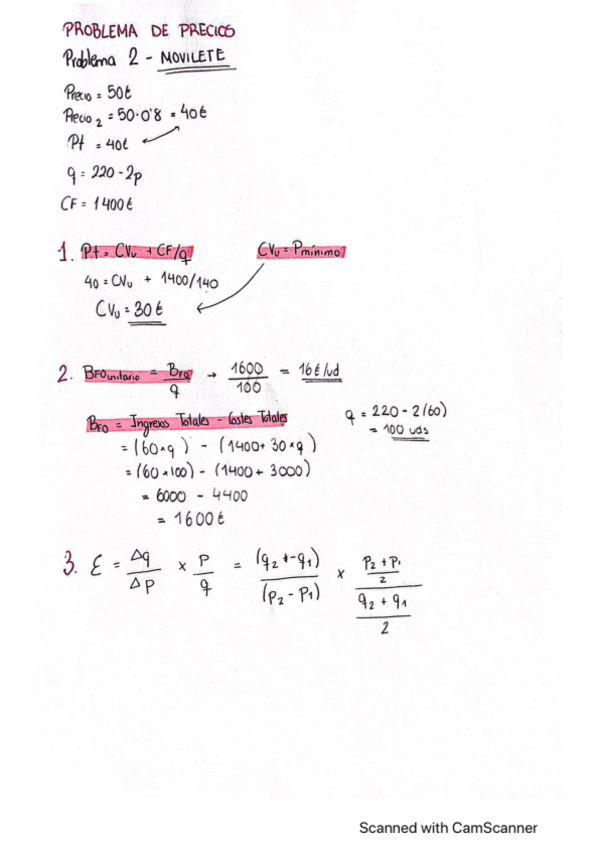 PROBLEMA DE PRECIOS
Problema 2 - MOVILETE
Precio = 50€
Precio 2 = 50·0'8 = 40€
Pt = 40€
q = 220 - 2p
CF = 1400€
1. Pt = CVu + CF/q
CVu = Pmínimo
40 = CVu + 1400/140
CVu = 30€
2. BFOunitario = BFO / q → 1600 / 100 = 16€/ud
BFO = Ingresos Totales - Costes Totales
q = 220 - 2(60)
= 100 uds
= (60×q) - (1400 + 30×q)
= (60×100) - (1400 + 3000)
= 6000 - 4400
= 1600€
3. Ɛ = Δq / Δp × p / q = (q2 +- q1) / (p2 - p1) × p2 + p1 / 2 / q2 + q1 / 2
Scanned with CamScanner